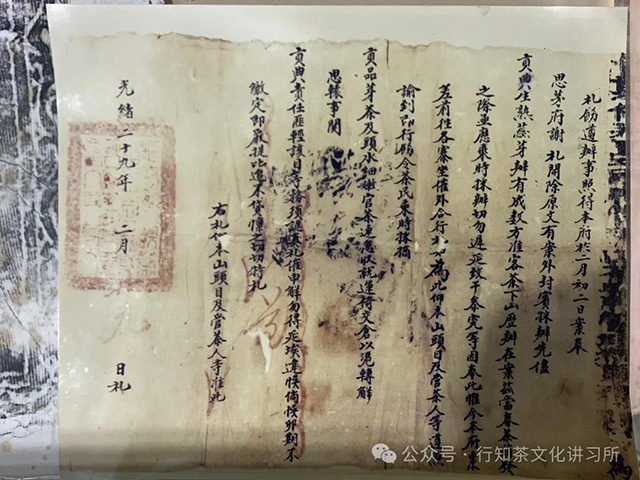 札飭遵辦事照得本府於二月初二日案奉
思茅府謝 札開除原文有案外封 採辦先儘
貢典生熟蕊芽辦有成數方准客茶下山歷辦在案茲當春茶發
之際亟應乘時採辦切勿遲延致干參究等因奉此惟今本府業
差前往各寨坐催外合行札為此仰本山頭目及管茶人等遵照
諭到即行飭令茶民乘時採摘
貢品芽茶及頭水細嫩官茶速急收就運 交倉以憑轉解
思轅事関
貢典責任匪輕該目等務須認真札催申解勿得延挨違悮倘悮卯期不
繳定即嚴提比追不貸懍之切切特札
右札仰本山頭目及管茶人等准此
光緒二十九年 二月 日札
公众号·行知茶文化讲习所